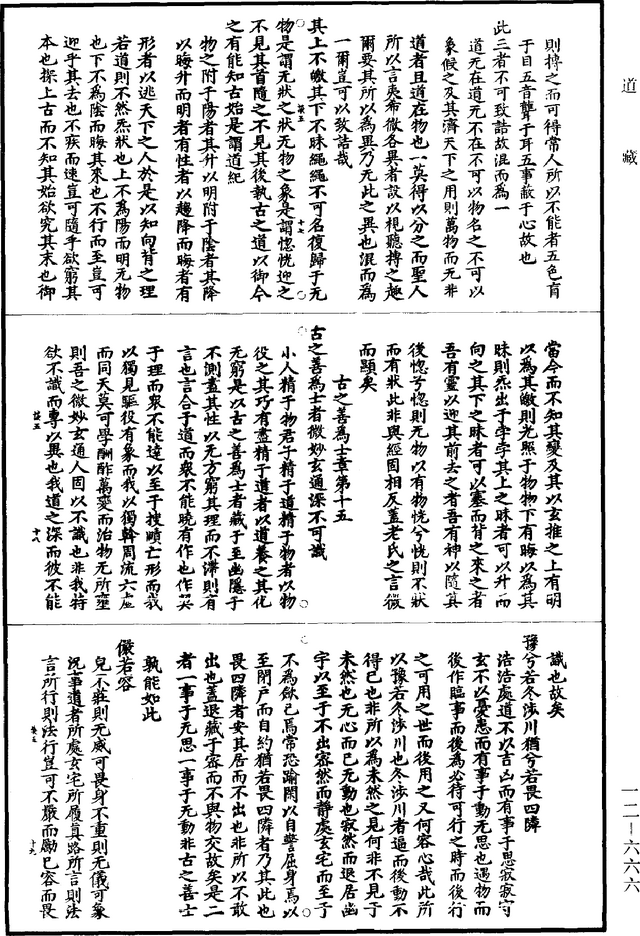 道藏
則搏之而可得常人所以不能者五色盲
于目五音聾于耳五事蔽于心故也
此三者不可致詰故混而為一
道无在道无不在不可以物名之不可以
象候之及其濟天下之用則萬物而无非
道者且道在物也一莫得以分之而聖人
所以言夷希微各異者設以視聽搏之趣
爾要其所以為異乃无此之異也混而為
一爾豈可以致詰哉
其上不皦其下不昧繩繩不可名復歸于无
物是謂无狀之狀无物之象是謂惚恍迎之
不見其首隨之不見其後執古之道以御今
之有能知古始是謂道紀
物之附于陽者其升以明附于陰者其降
以晦升而明者有性者以趨降而晦者有
形者以逃天下之人於是以知向背之理
若道則不然炁狀也上不為陽而明无物
也下不為陰而晦其來也不行而至豈可
迎乎其去也不疾而速豈可隨乎欲窮其
本也探上古而不知其始欲究其末也御
當今而不知其變及其以玄推之上有明
以為其皦則光照于物物下有晦以為其
昧則炁出于孛孛其上之昧者可以升而
向之其下之昧者可以塞而背之來之者
吾有靈以迎其前去之者吾有神以隨其
後惚兮惚則无物以有物恍兮恍則不狀
而有狀此非與經固相反蓋老氏之言微
而顯矣
古之善為士章第十五
古之善為士者微妙玄通深不可識
小人精于物君子精于道精于物者以物
役之其巧有盡精于道者以道養之其化
无窮是以古之善為士者藏于至幽隱于
不測盡其性以无方窮其理而不滯則有
言也言合于道而衆不能曉有作也作契
于理而衆不能達以至于搜賾亡形而我
以獨見驅役有象而我以獨斡周流六虛
而同天莫可學酬酢萬變而治物无所壅
則吾之微妙玄通人固以不識也非我特
欲不識而專以異也我道之深而彼不能
識也故矣
豫兮若冬涉川猶兮若畏四隣
浩浩處道不以吉凶而有事于思寂寂守
玄不以憂患而有事于動无思也遇物而
後作臨事而後為必待可行之時而後行
之可用之世而後用之又何容心哉此所
以豫若冬涉川也冬涉川者逼而後動不
得已也非所以為未然之見何非不見于
未然也无心而已无動也寂然而退居幽
宇以至于不出窅然而靜處玄宅而至于
不為餘已焉常恐踰閑以自警屈身焉以
至閉戶而自約猶若畏四隣者乃其此也
畏四隣者安其居而不出也非所以不敢
出也蓋退藏于密而不與物交故矣是二
者一事于无思一事于无動非古之善士
孰能如此
儼若容
皃不莊則无威可畏身不重則无儀可象
況事道者所處玄宅所履真路所言則法
言所行則法行豈可不嚴而勵己容而畏
一二—六六六